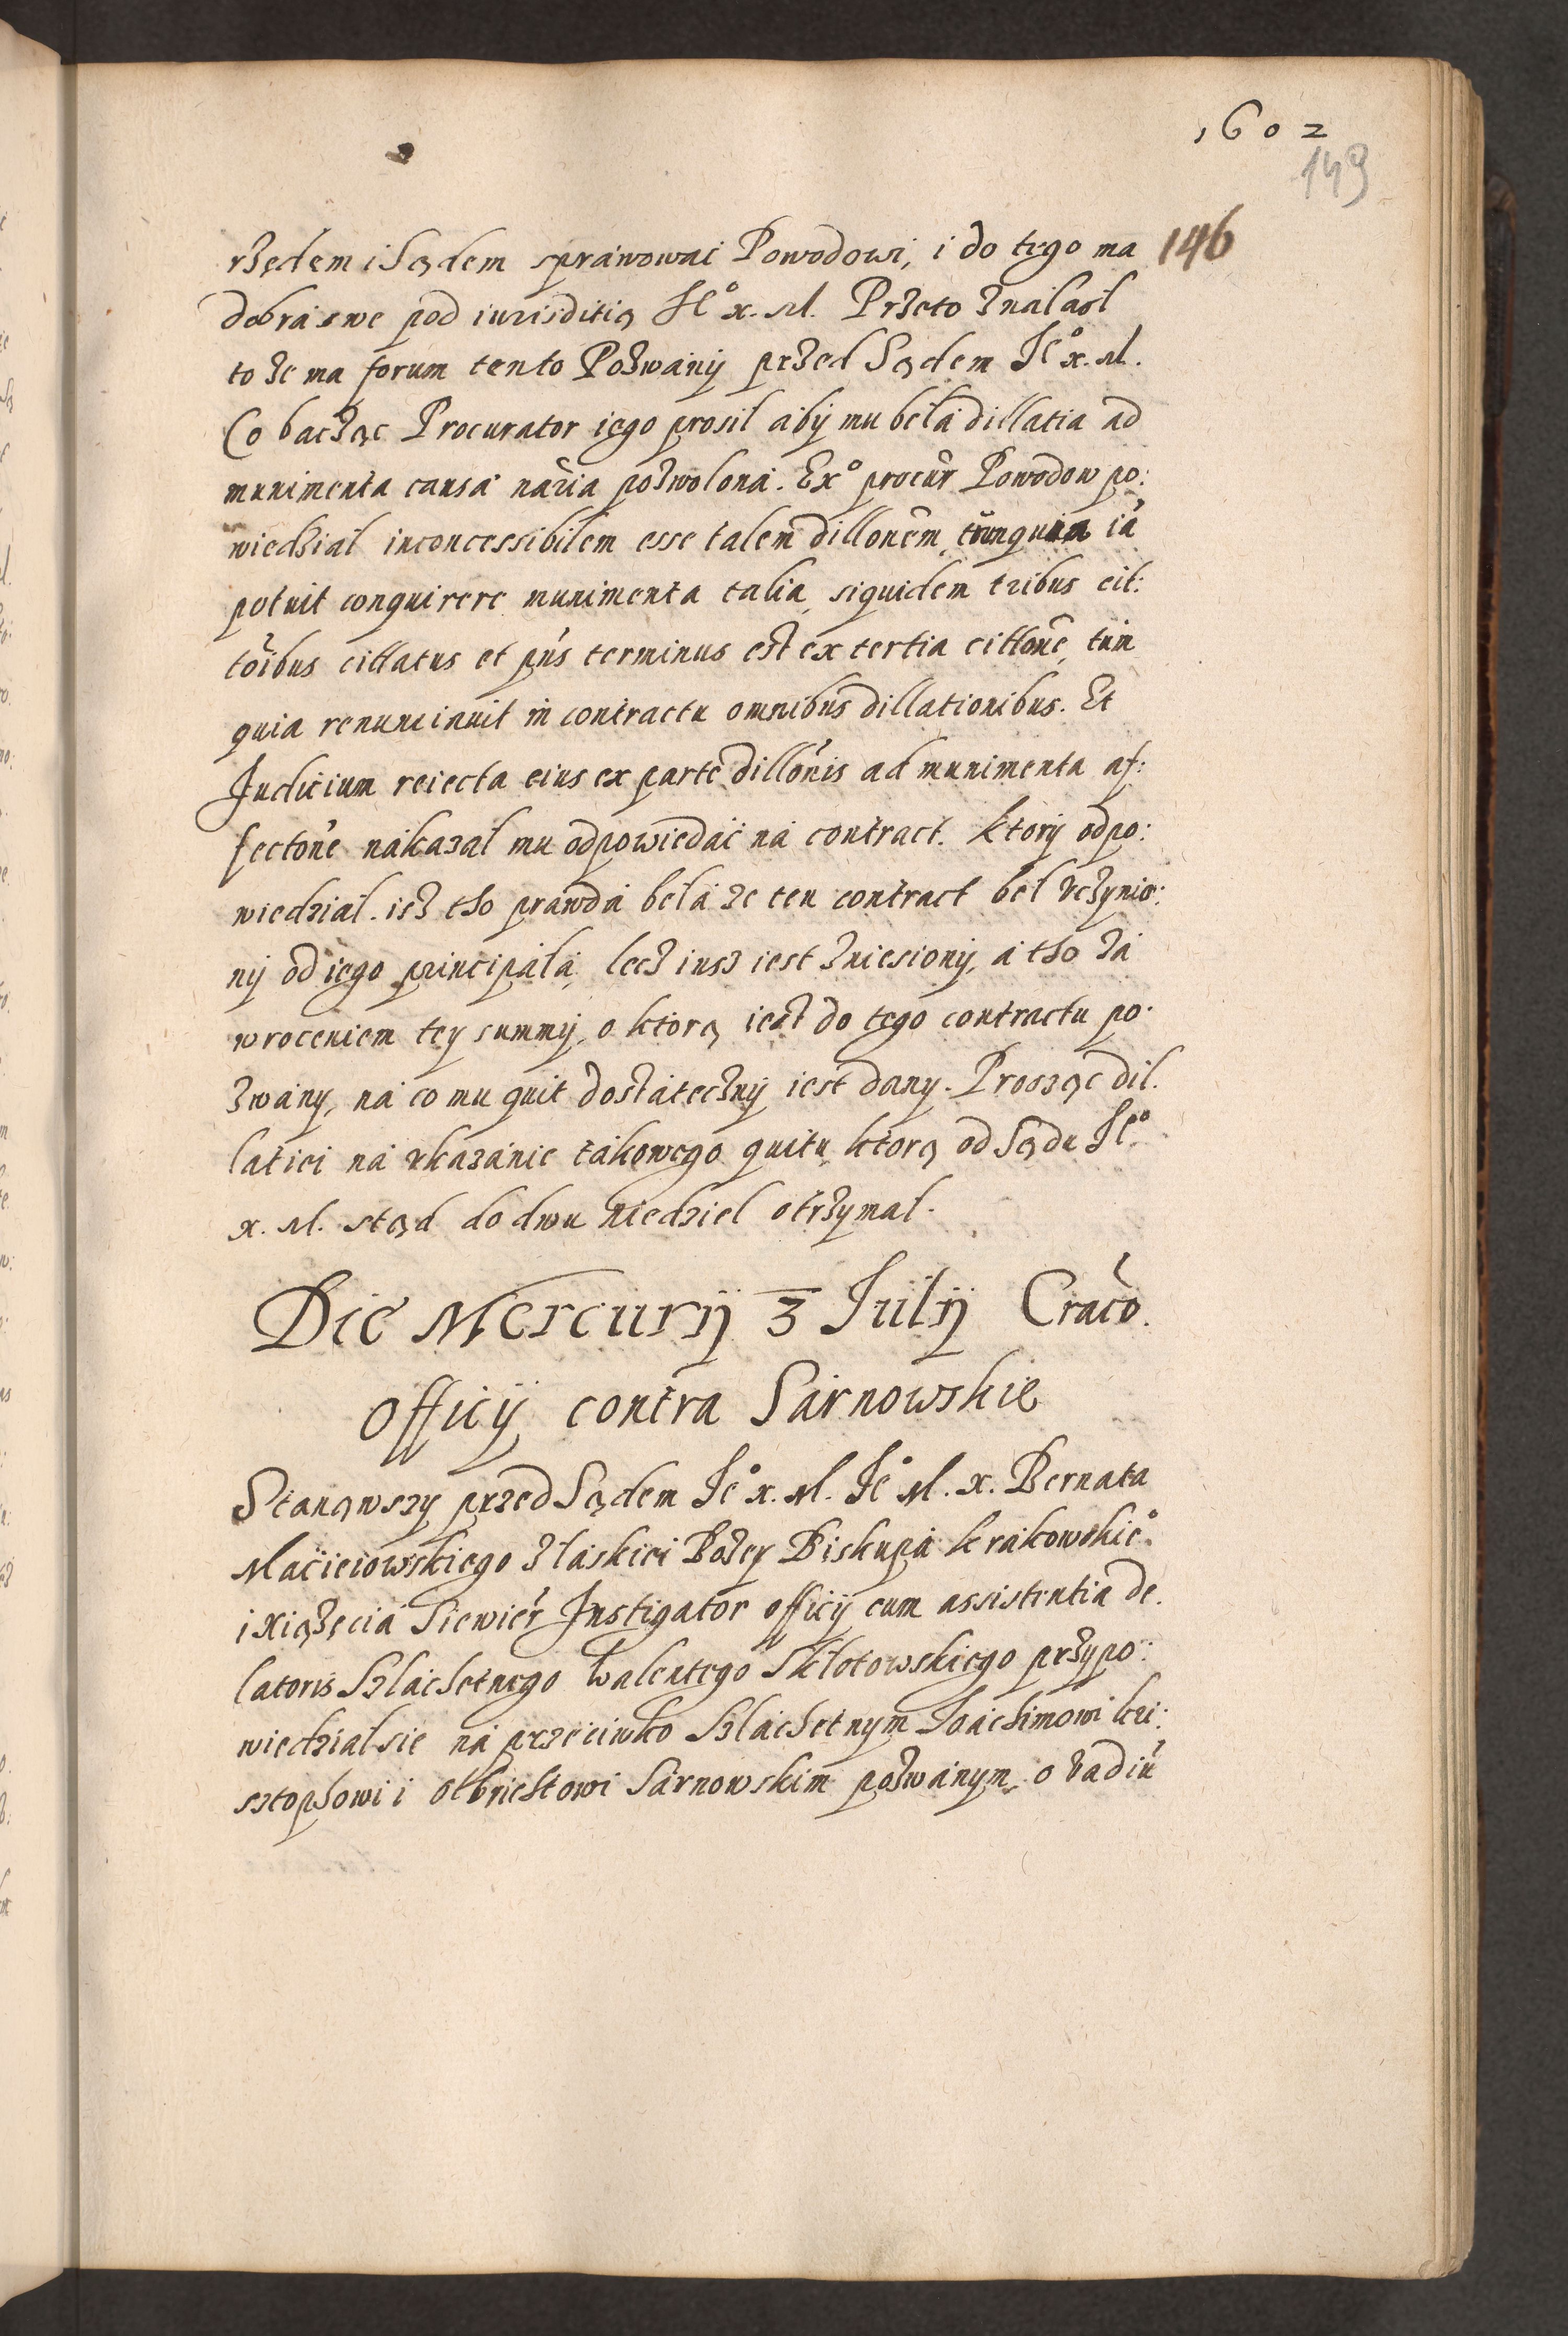 1602
149
146
rzędem i Sądem spráwowáć Powodowi, i do tego ma
dobrá swe pod iurisditią Je° x. M. Przeto ználazl
to że ma forum tento Pozwány przed Sądem Je° x. M.
Co bacząc Procurator iego prosil áby mu belá dillatia ad
munimenta causá nãria pozwoloná. Ex° procur Powodow po:
wiedzial inconcessibilem esse talem dillonem, tum quia iã
potuit conquirere munimenta talia, siquidem tribus cit:
toibus cittatus et pñs terminus est ex tertia cittone, tum
quia renunciauit in contractu omnibus dillationibus. Et
Judicium reiecta eius ex parte dillonis ad munimenta af:
fectone nákazal mu odpowiedáć ná contract. ktory odpo:
wiedzial. isz tho prawdá belá że ten contract bel vczynio:
ny od iego principálá, lecz iusz iest zniesiony, á tho zá
wroceniem tey summy, o ktorą iest do tego contractu po:
zwany, ná co mu quit dostáteczny iest dany. Prosząc dil:
latiei ná vkazánie tákowego quitu, ktorą od Sądu Je°
x. M. stąd do dwu niedziel otrzymal.
Die Mercurij 3 Julij Craco.
Officij contra Sárnowskie
Stanąwszy przed Sądem Je° x. M. Je° M. x. Bernata
Máciejowskiego z láskiei Bożey Biskupá krákowskie°
i Xiążęciá Siewier Instigator officij cum assistentia de:
latoris Szláchetnego Walentego Sklotowskiego przypo:
wiedzial sie ná przeciwko Szláchetnym Joáchimowi kri:
sztophowi i Olbrichtowi Sárnowskim pozwánym, o vadiu